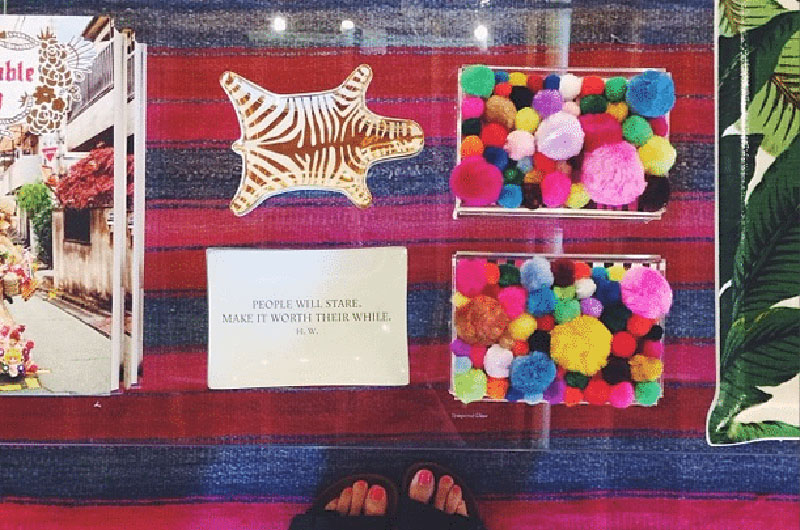 able
PEOPLE WILL STARE.
MAKE IT WORTH THEIR WHILE.
H. W.